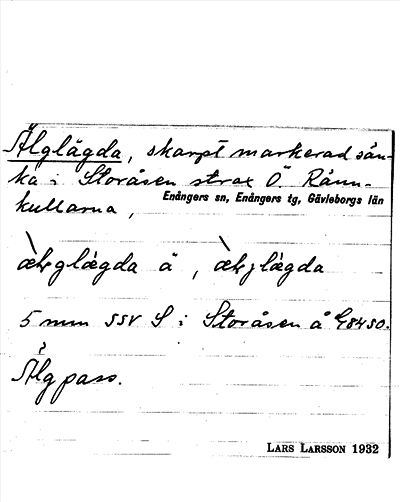 Älglägda, skarpt markerad sän-
ka i Storåsen strax Ö. Rånn-
kullarna,
Enångers sn, Enångers tg, Gävleborgs län
glægda å,
5 mm SSV S i Storåsen å G8450.
Älgpass.
LARS LARSSON 1932